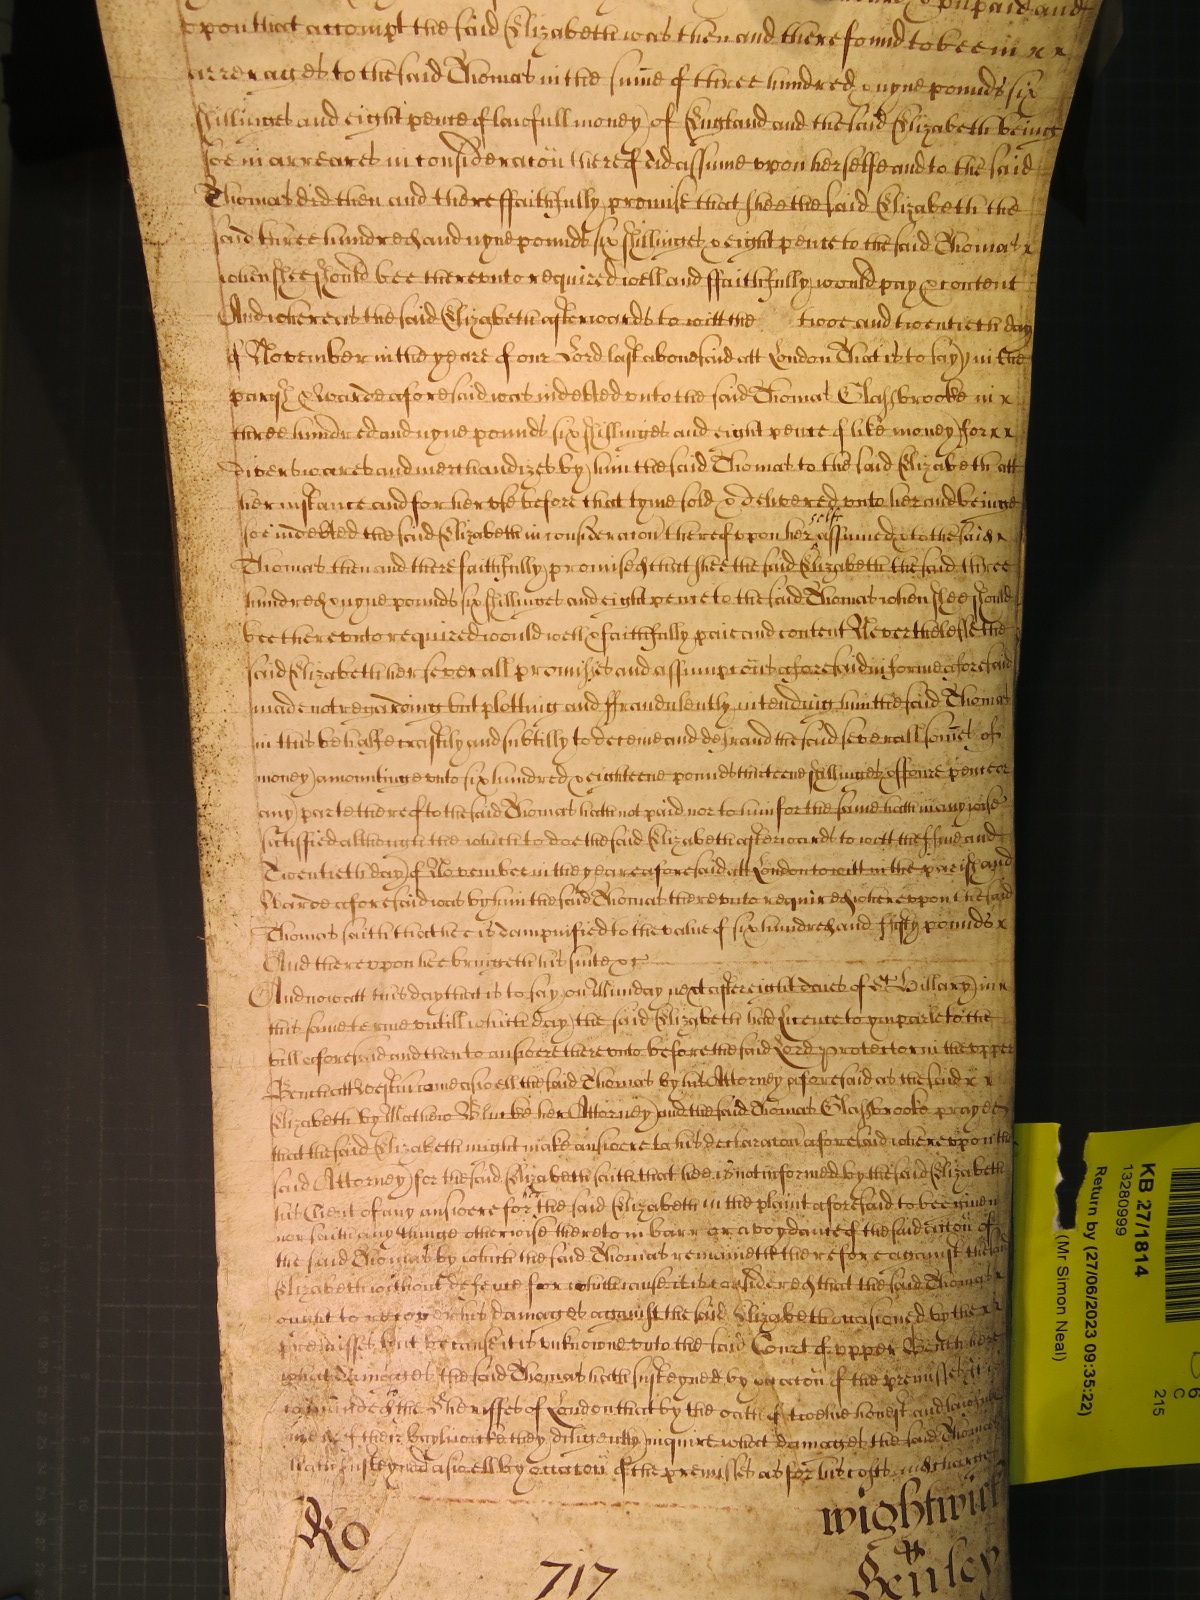 unpaid and
upon that accompt the said Elizabeth was then and there found to bee in x x
arrerages to the said Thomas in the sume of three hundred & nyne pounds six
shillinges and eight pence of lawfull money of England and the said Elizabeth being
soe in arreares in consideracon thereof did assume upon herselfe and to the said
Thomas did then and there ffaithfully promise that shee the said Elizabeth the
said three hundred and nyne pounds six shillinges & eight pence to the said Thomas x
when shee should bee thereunto required well and ffaithfully would pay & content
And whereas the said Elizabeth afterwards to witt the twoe and twentieth day
of November in the yeare of our Lord last abovesaid att London That is to say in the
parish & Warde aforesaid was indebted unto the said Thomas Glassbrooke in x
three hundred and nyne pounds six shillinges and eight pence of like money for x x
divers wares and merchandizes by him the said Thomas to the said Elizabeth att
her instance and for her use before that tyme sold & delivered unto her and beinge
soe indebted the said Elizabeth in consideracon thereof upon her selfe assumed & to the said x
Thomas then and there faithfully promised that shee the said Elizabeth the said three
hundred & nyne pounds six shillinges and eight pence to the said Thomas when shee should
bee thereunto required would well & faithfully paie and content Neverthelesse the
said Elizabeth her severall promises and assumpcons aforesaid in forme aforesaid
made not regarding but plotting and ffraudulently intending him the said Thomas
in this behalfe craftily and subtilly to deceive and defraud the said severall somes of
money amountinge unto six hundred & eighteene pounds thirteene shillinges & foure pence or
any parte thereof to the said Thomas hath not paid nor to him for the same hath in any wise
satisfied although the which to doe the said Elizabeth afterwards to witt the ffive and
Twentieth day of November in the yeare aforesaid att London to witt in the parish and
Warde aforesaid was by him the said Thomas thereunto required whereupon the said
Thomas saith that hee is dampnified to the value of six hundred and fifty pounds x
And thereupon hee bringeth his suite &c
And now att this day that is to say on Munday next after eight daies of St Hillary in x
this same terme untill which day the said Elizabeth had licence to imparle to the
bill aforesaid and then to answere thereunto before the said Lord Protector in the upper
Bench att Westm come aswell the said Thomas by his Attorney aforesaid as the said x x
Elizabeth by Mathew Blucke her Attorney and the said Thomas Glassbrooke prayeth
that the said Elizabeth might make answere to his declaracon aforesaid whereupon the
said Attorney for the said Elizabeth saith that hee is not informed by the said Elizabeth
his Client of any answere for the said Elizabeth in the plaint aforesaid to bee given
nor saith any thinge otherwise thereto in barr or avoydance of the said accon of
the said Thomas by which the said Thomas remaineth therefore against the said
Elizabeth without defence for which cause it is considered that the said Thomas x
ought to recover his damages against the said Elizabeth occasioned by the x x
premisses but because it is unknowne unto the said Court of upper Bench here
what damages the said Thomas hath susteyned by occacon of the premisses It is
comanded the Sheriffes of London that by the oath of twelve honest and lawfull
men of their bayliwicke they diligently inquire what damages the said Thomas
hath susteyned aswell by occacon of the premisses as for his costs and charges
Ro
717
Wightwick
Henley
KB 27/1814
13280999
Return by (27/06/2023 09:35:22)
(Mr Simon Neal)
C
215